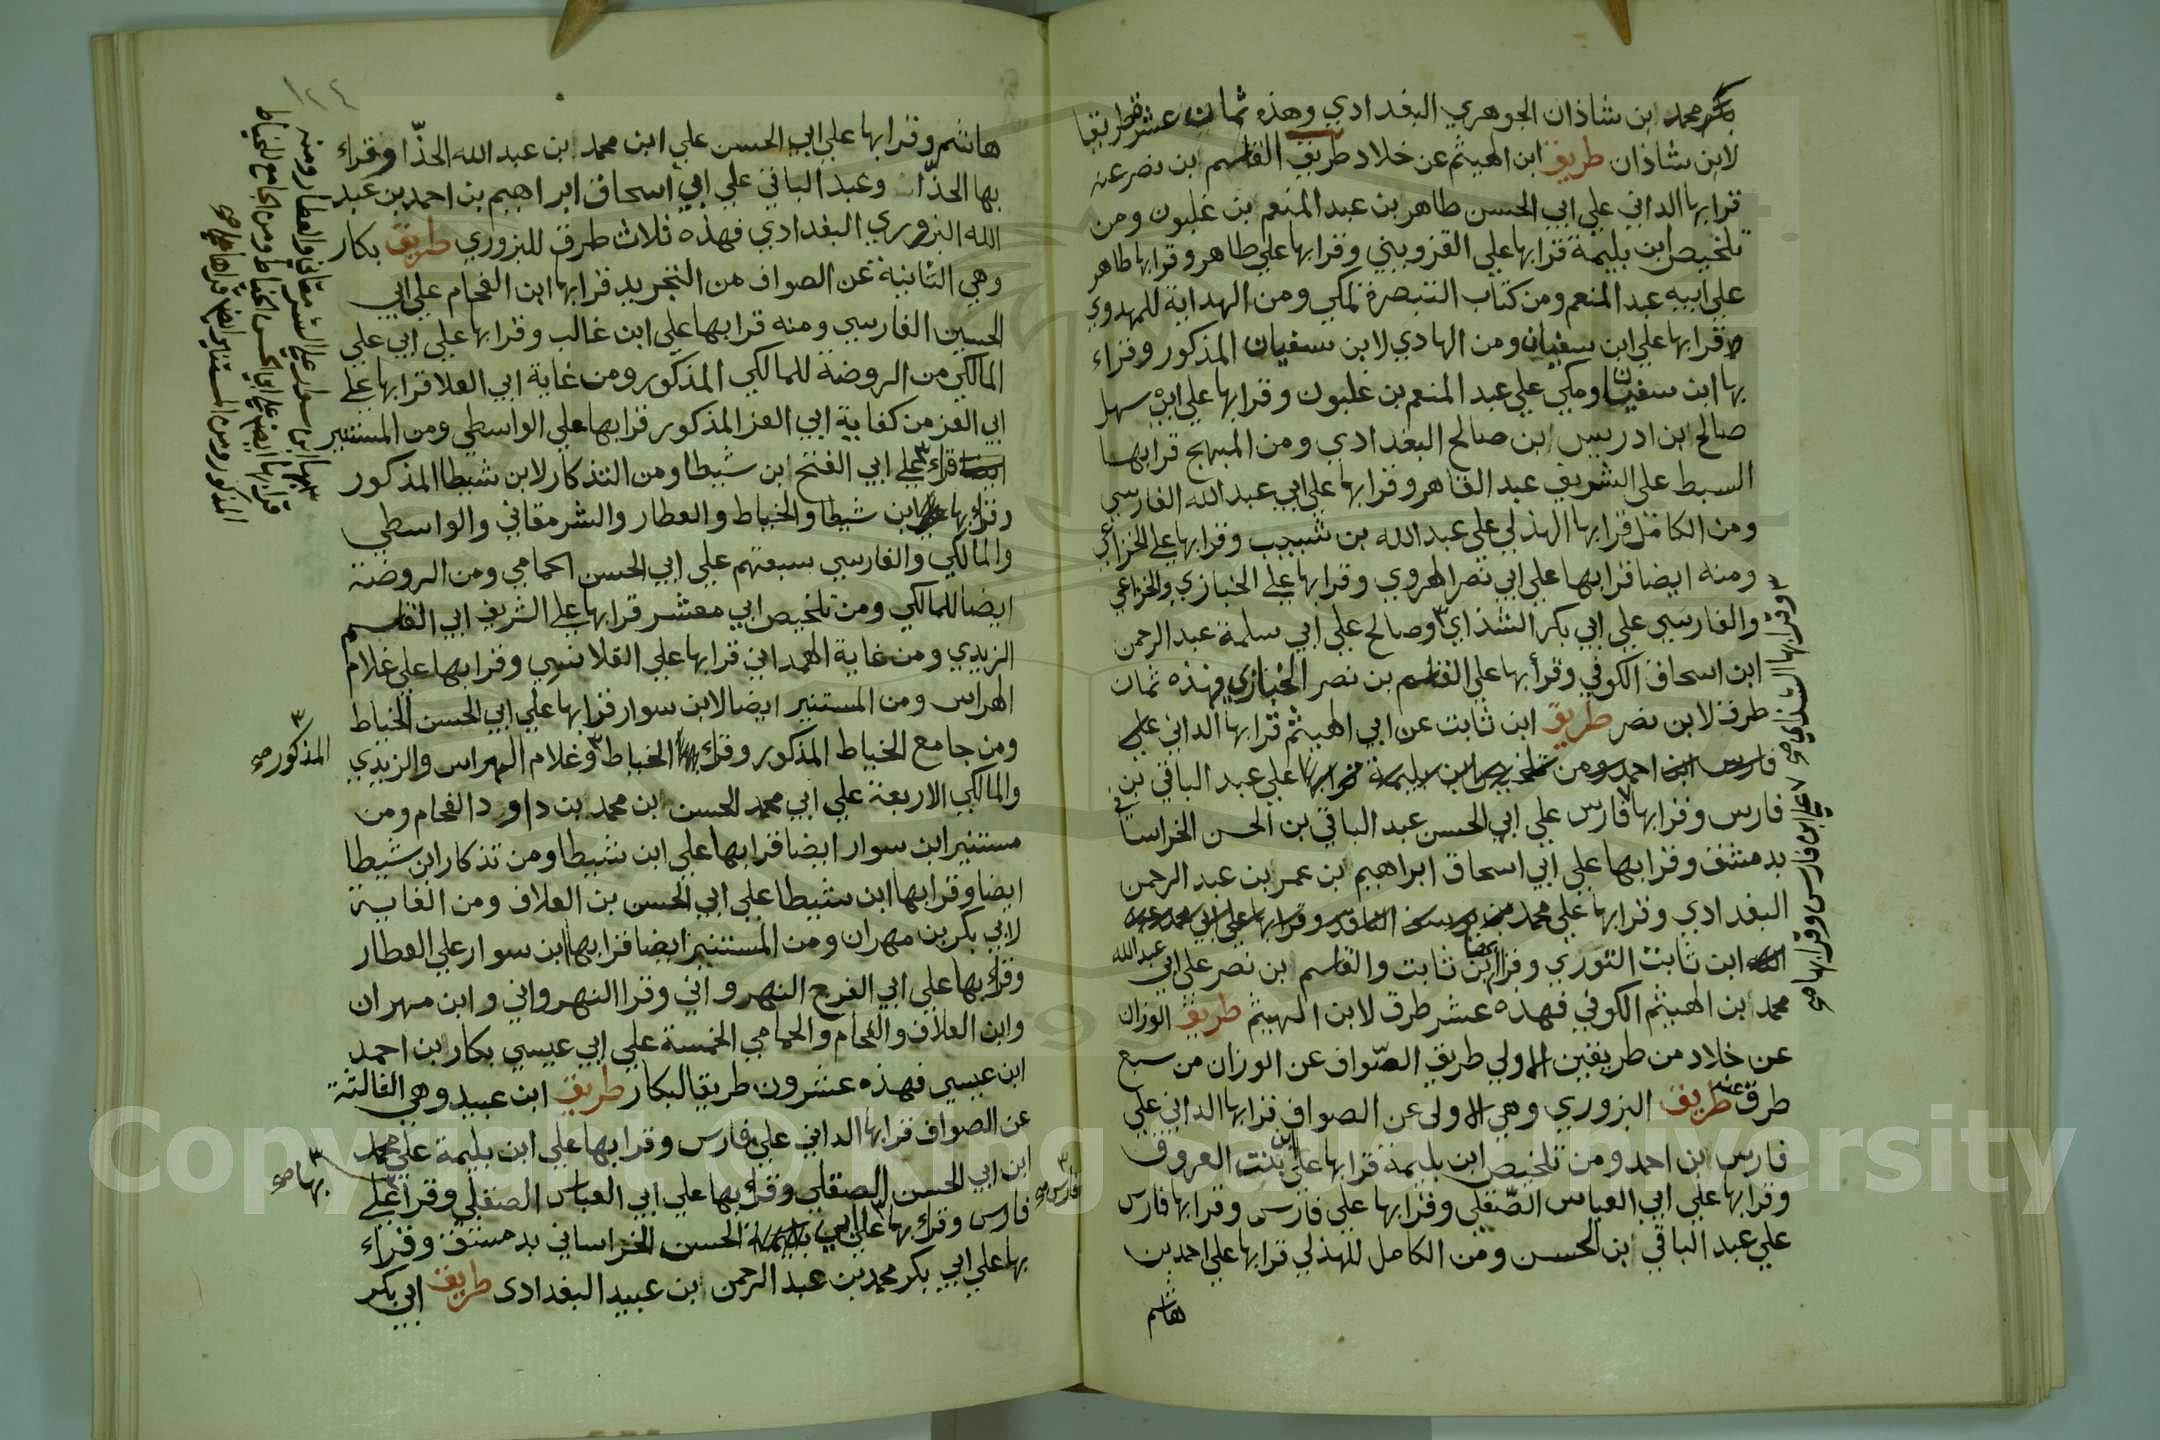 بكر محمد ابن شاذان الجوهري البغدادي وهذه ثمان عشر طريقا
لابن شاذان طريق ابن الهيثم عن خلاد طريق القاسم ابن نصر عنه
قرا بها الداني علي ابي الحسن طاهر بن عبد المنعم بن غلبون ومن
تلخيص ابن بليمة قرا بها علي القزويني وقرا بها علي طاهر وقرا بها طاهر
علي ابيه عبد المنعم ومن كتاب التبصرة لمكي ومن الهداية للمهدوي
قرا بها علي ابن سفيان ومن الهادي لابن سفيان المذكور وقراء
بها ابن سفيان ومكي علي عبد المنعم بن غلبون وقرا بها علي ابي سهل
صالح ابن ادريس ابن صالح البغدادي ومن المبهج قرا بها
السبط علي الشريف عبد القاهر وقرا بها علي ابي عبد الله الفارسي
ومن الكامل قرا بها الهذلي علي عبد الله بن شبيب وقرا بها علي الخزاعي
ومنه ايضا قرا بها علي ابي نصر الهروي وقرا بها علي الخبازي والخزاعي
والفارسي علي ابي بكر الشذاي وصالح علي ابي سلمة عبد الرحمن
ابن اسحاق الكوفي وقرأ بها علي القاسم بن نصر الخبازي فهذه ثمان
طرق لابن نصر طريق ابن ثابت عن ابي الهيثم قرا بها الداني علي
فارس ابن احمد ومن تلخيص ابن بليمة قرا بها علي عبد الباقي بن
فارس وقرا بها فارس علي ابي الحسن عبد الباقي بن الحسن الخراساني
بدمشق وقرا بها علي ابي اسحاق ابراهيم بن عمر بن عبد الرحمن
البغدادي وقرا بها علي محمد بن يوسف الناقد وقرا بها علي ابي محمد عبد
الله ابن ثابت التوري وقرا ابن ثابت والقاسم بن نصر علي ابي عبد الله
محمد ابن الهيثم الكوفي فهذه عشر طرق لابن الهيثم طريق الوزان
عن خلاد من طريقين الاولي طريق الصواف عن الوزان من سبع
طرق عنه طريق البزوري وهي الاولى عن الصواف قرا بها الداني علي
فارس ابن احمد ومن تلخيص ابن بليمة قرا بها علي ابن بنت العروق
وقرا بها علي ابي العباس الصقلي وقرا بها علي فارس وقرا بها فارس
علي عبد الباقي ابن الحسن ومن الكامل للهذلي قرا بها علي احمد بن
هاشم
وقرا بها الشذاي صح
علي ابن فارس وقرا بها صح
١٢٤
هاشم وقرا بها علي ابي الحسن علي ابن محمد ابن عبد الله الحذا وقراء
بها الحذا وعبد الباقي علي ابي اسحاق ابراهيم بن احمد بن عبد
الله البزوري البغدادي فهذه ثلاث طرق للبزوري طريق بكار
وهي الثانية عن الصواف من التجريد قرا بها ابن الفحام علي ابي
الحسين الفارسي ومنه قرا بها علي ابن غالب وقرا بها علي ابي علي
المالكي من الروضة للمالكي المذكور ومن غاية ابي العلا قرا بها علي
ابي العز من كفاية ابي العز المذكور قرا بها علي الواسطي ومن المستنير
ايضا قراء علي ابي الفتح ابن شيطا ومن التذكار لابن شيطا المذكور
وقراء بها ابن شيطا والخياط والعطار والشرمقاني والواسطي
والمالكي والفارسي سبعتهم علي ابي الحسن الحمامي ومن الروضة
ايضا للمالكي ومن تلخيص ابي معشر قرا بها علي الشريف ابي القاسم
الزيدي ومن غاية الهمداني قرا بها علي القلانسي وقرا بها علي غلام
الهراس ومن المستنير ايضا لابن سوار قرا بها علي ابي الحسن الخياط
ومن جامع الخياط المذكور وقراء بها الخياط وغلام الهراس والزيدي
والمالكي الاربعة علي ابي محمد الحسن ابن محمد بن داود الفحام ومن
مستنير ابن سوار ايضا قرا بها علي ابن شيطا ومن تذكار ابن شيطا
ايضا وقرا بها ابن شيطا علي ابي الحسن بن العلاف ومن الغاية
لابي بكر بن مهران ومن المستنير ايضا قرا بها ابن سوار علي العطار
وقراء بها علي ابي الفرج النهرواني وقرا النهرواني وابن مهران
وابن العلاف والفحام والحمامي الخمسة علي ابي عيسي بكار بن احمد
ابن عيسي فهذه عشرون طريقا لبكار طريق ابن عبيد وهي الثالثة
عن الصواف قرا بها الداني علي فارس وقرا بها علي ابن بليمة علي محمد
ابن ابي الحسن الصقلي وقراء بها علي ابي العباس الصقلي وقرا علي
فارس وقراء بها علي ابي الحسن الخراساني بدمشق وقراء
بها علي ابي بكر محمد بن عبد الرحمن ابن عبيد البغدادي طريق ابي بكر
بها ابن سوار علي الشرمقاني والعطار ومنه
قرا بها ايضا علي ابي الحسن الخياط ومن الجامع للخياط
المذكور ومن المستنير ايضا قراها علي صح
المذكور صح
بها صح
فارس صح
Copyright © King Saud University